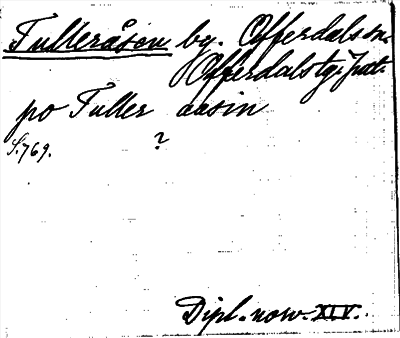 Fulleråsen by. Offerdals sn.
Offerdals tg. Jmt.
po Fuller aasin
S. 769. ?
Dipl. norv. XIV.